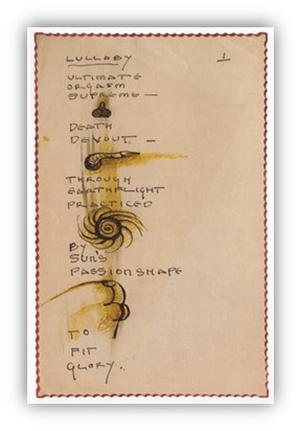 LULLABY 1
ULTIMATE
ORGASM
SUPREME —
DEATH
DEVOUT. —
THROUGH
EARTHFLIGHT
PRACTICED
BY
SUN'S
PASSIONSHAPE
TO
FIT
GLORY..